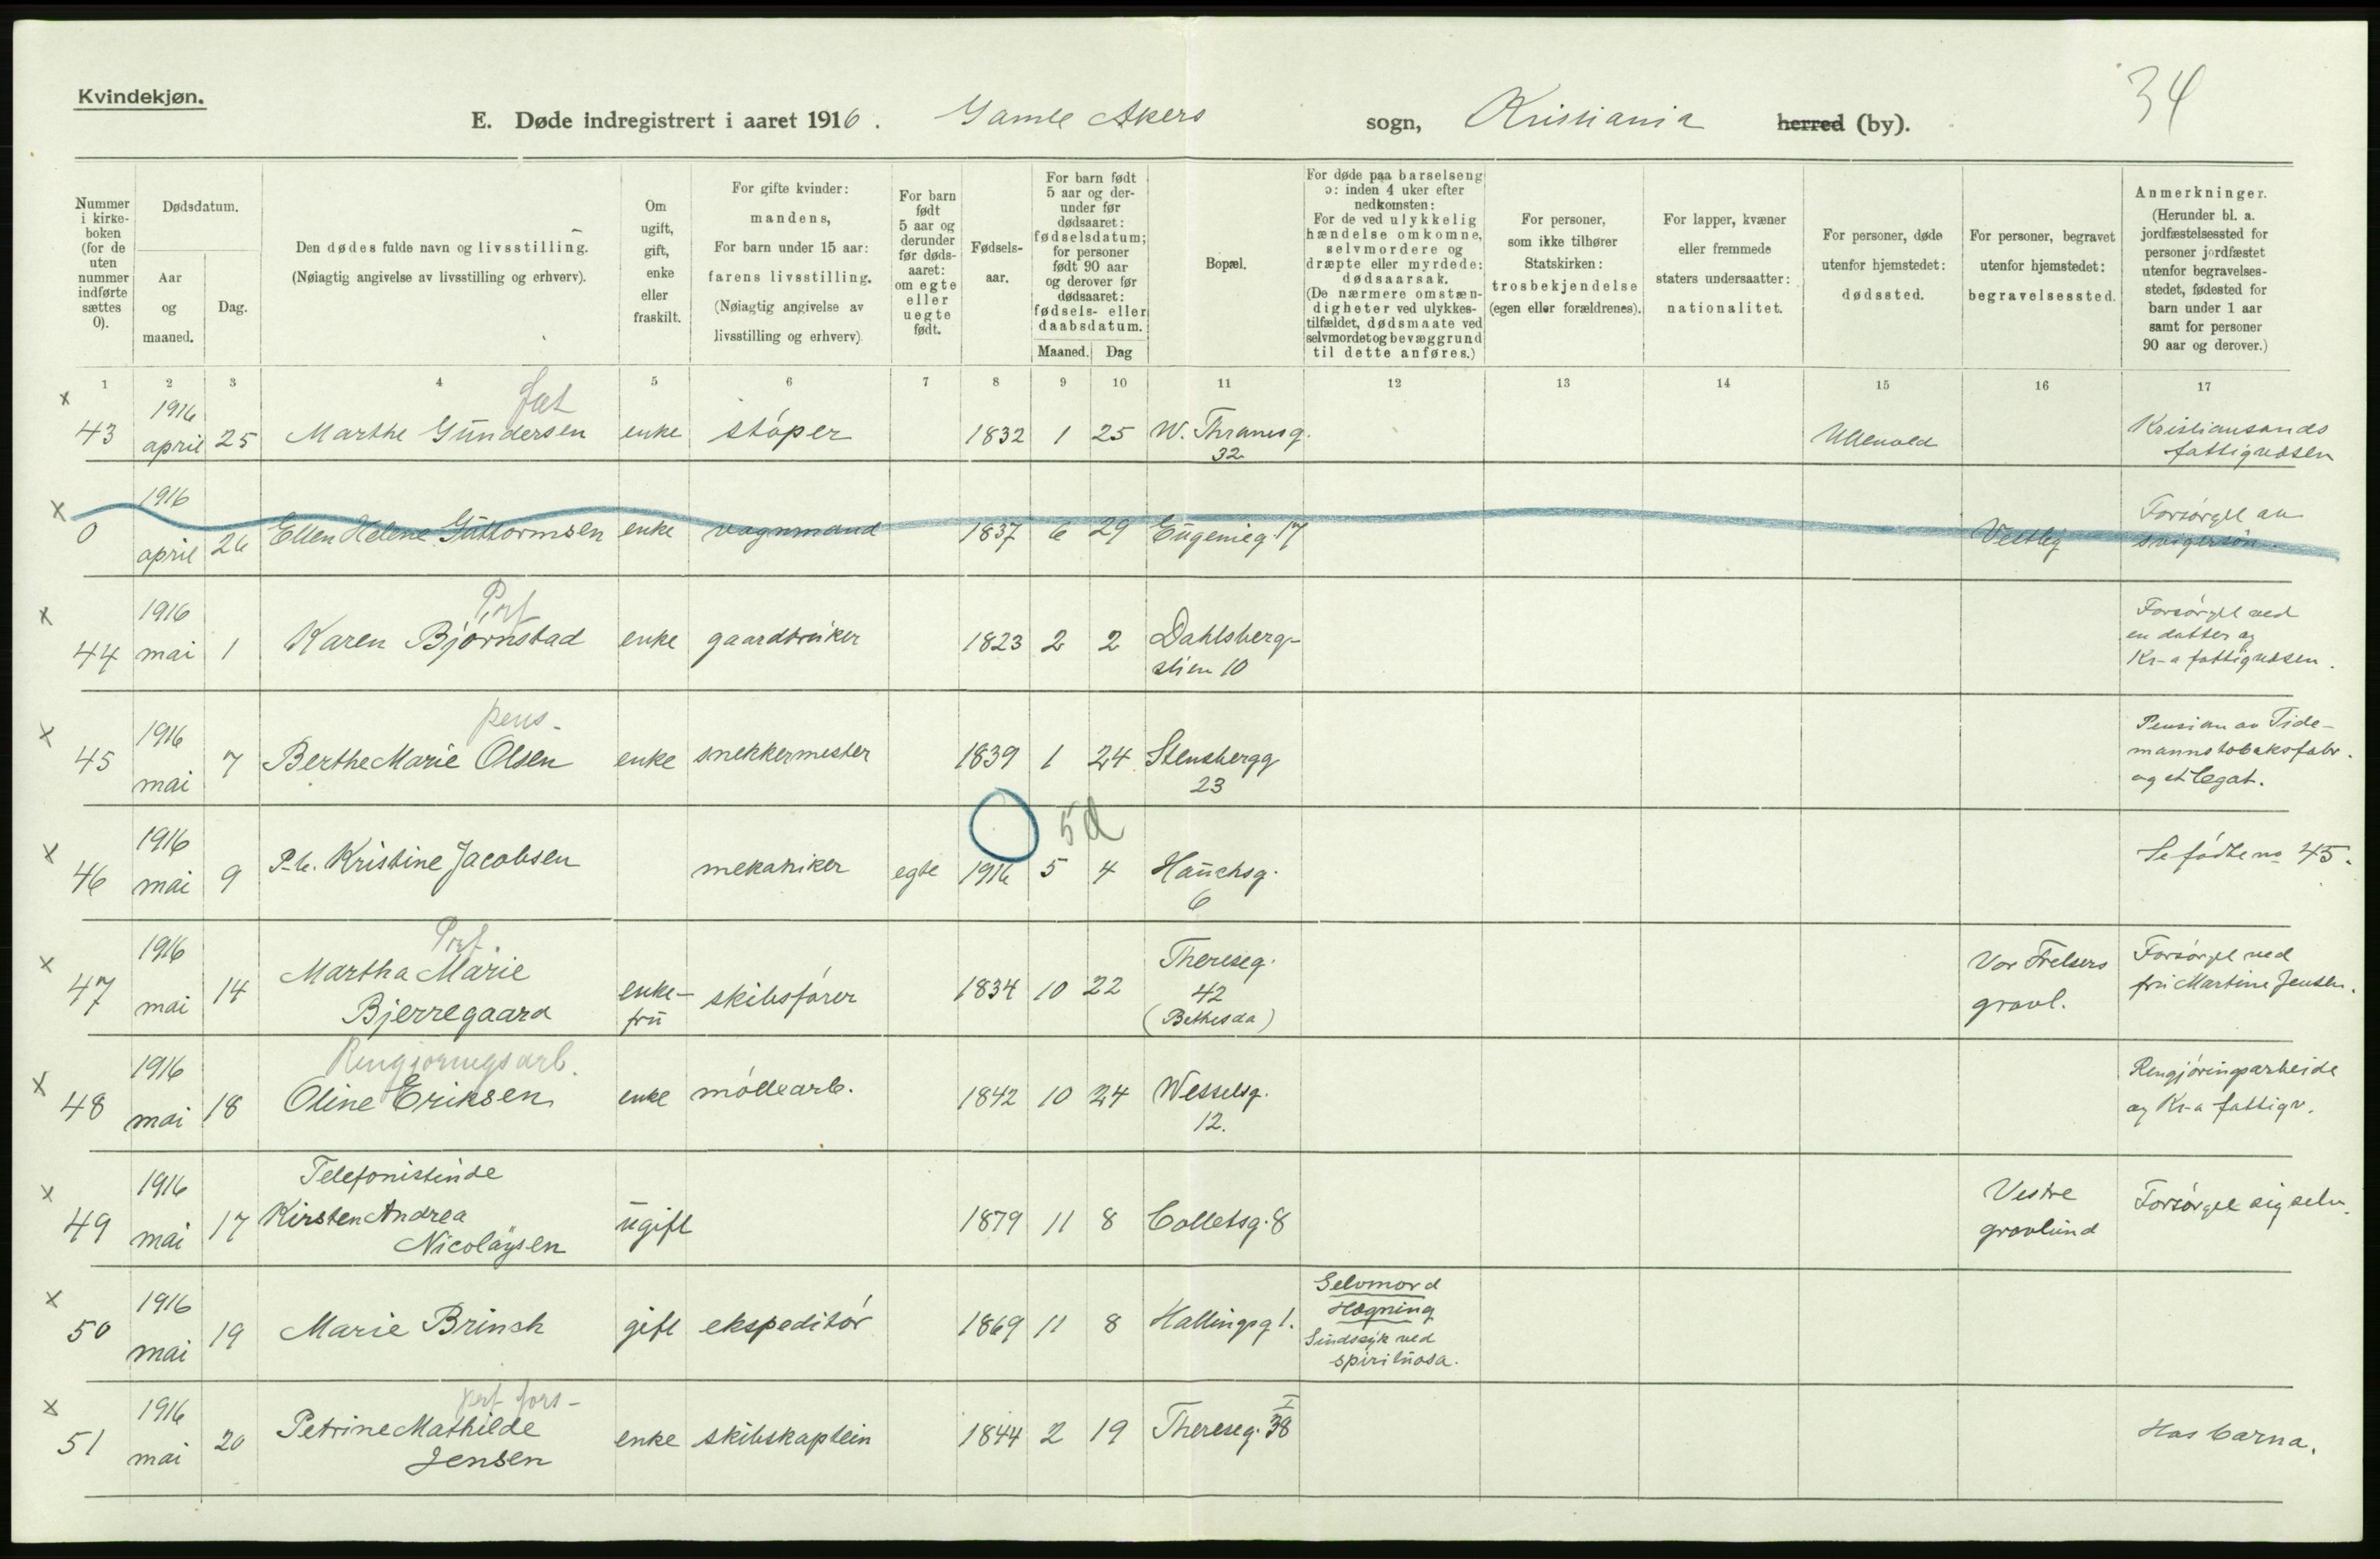 Kvindekjøn.
34
E. Døde indregistrert i aaret 1916. Gamle Akers sogn, Kristiania herred (by).
Nummer i kirkeboken (for de uten nummer indførte sættes 0).
Dødsdatum.
Aar og maaned.
Dag.
Den dødes fulde navn og livsstilling.
(Nøiagtig angivelse av livsstilling og erhverv).
Om ugift, gift, enke eller fraskilt.
For gifte kvinder: mandens, For barn under 15 aar: farens livsstilling.
(Nøiagtig angivelse av livsstilling og erhverv)
For barn født 5 aar og derunder før dødsaaret: om egte eller uegte født.
Fødselsaar.
For barn født 5 aar og derunder før dødsaaret: fødselsdatum; for personer født 90 aar og derover før dødsaaret: fødsels- eller daabsdatum.
Maaned. Dag
Bopæl.
For døde paa barselseng ɔ: inden 4 uker efter nedkomsten: For de ved ulykkelig hændelse omkomne, selvmordere og dræpte eller myrdede: dødsaarsak.
(De nærmere omstændigheter ved ulykkestilfældet, dødsmaate ved selvmordet og bevæggrund til dette anføres.)
For personer, som ikke tilhører Statskirken: trosbekjendelse (egen eller forældrenes).
For lapper, kvæner eller fremmede staters undersaatter: nationalitet.
For personer, døde utenfor hjemstedet: dødssted.
For personer, begravet utenfor hjemstedet: begravelsessted.
Anmerkninger.
(Herunder bl. a. jordfæstelsessted for personer jordfæstet utenfor begravelsesstedet, fødested for barn under 1 aar samt for personer 90 aar og derover.)
1 2 3 4 5 6 7 8 9 10 11 12 13 14 15 16 17
x 43 1916 april 25 fat Marthe Gundersen enke støper 1832 1 25 W. Thranesg. 32 Ullevold Kristiansands fattigvæsen
x 0 1916 april 26 Ellen Helene Guttormsen enke vognmand 1837 6 29 Eugenieg 17 Vestby Forsørget av svigersøn.
x 44 1916 mai 1 Prf Karen Bjørnstad enke gaardbruker 1823 2 2 Dahlsbergstien 10 Forsørget ved en datter og Kr-a fattigvæsen.
x 45 1916 mai 7 pens- Berthe Marie Olsen enke snekkermester 1839 1 24 Stensbergg 23 Pension av Tidemannstobaksfabr. og et legat.
x 46 1916 mai 9 P.b. Kristine Jacobsen mekaniker egte 1916 5 4 5d Hauchsg. 6 Se fødte no 45.
x 47 1916 mai 14 Prf. Martha Marie Bjerregaard enkefru skibsfører 1834 10 22 Thereseg. 42 (Bethesda) Vor Frelsers gravl. Forsørget ved fru Martine Jensen.
x 48 1916 mai 18 Rengjøringsarb. Oline Eriksen enke møllearb. 1842 10 24 Wesselsg. 12. Rengjøringsarbeide og Kr-a fattigv.
x 49 1916 mai 17 Telefonistinde Kirsten Andrea Nicolaysen ugift 1879 11 8 Colletsg. 8 Vestre gravlund Forsørget sig selv.
x 50 1916 mai 19 Marie Brinch gift ekspeditør 1869 11 8 Hallingsg 1. Selvmord Hægning Sindssyk ved spirituosa.
x 51 1916 mai 20 prf fors- Petrine Mathilde Jensen enke skibskaptein 1844 2 19 Thereseg. 38 I Hos barna.